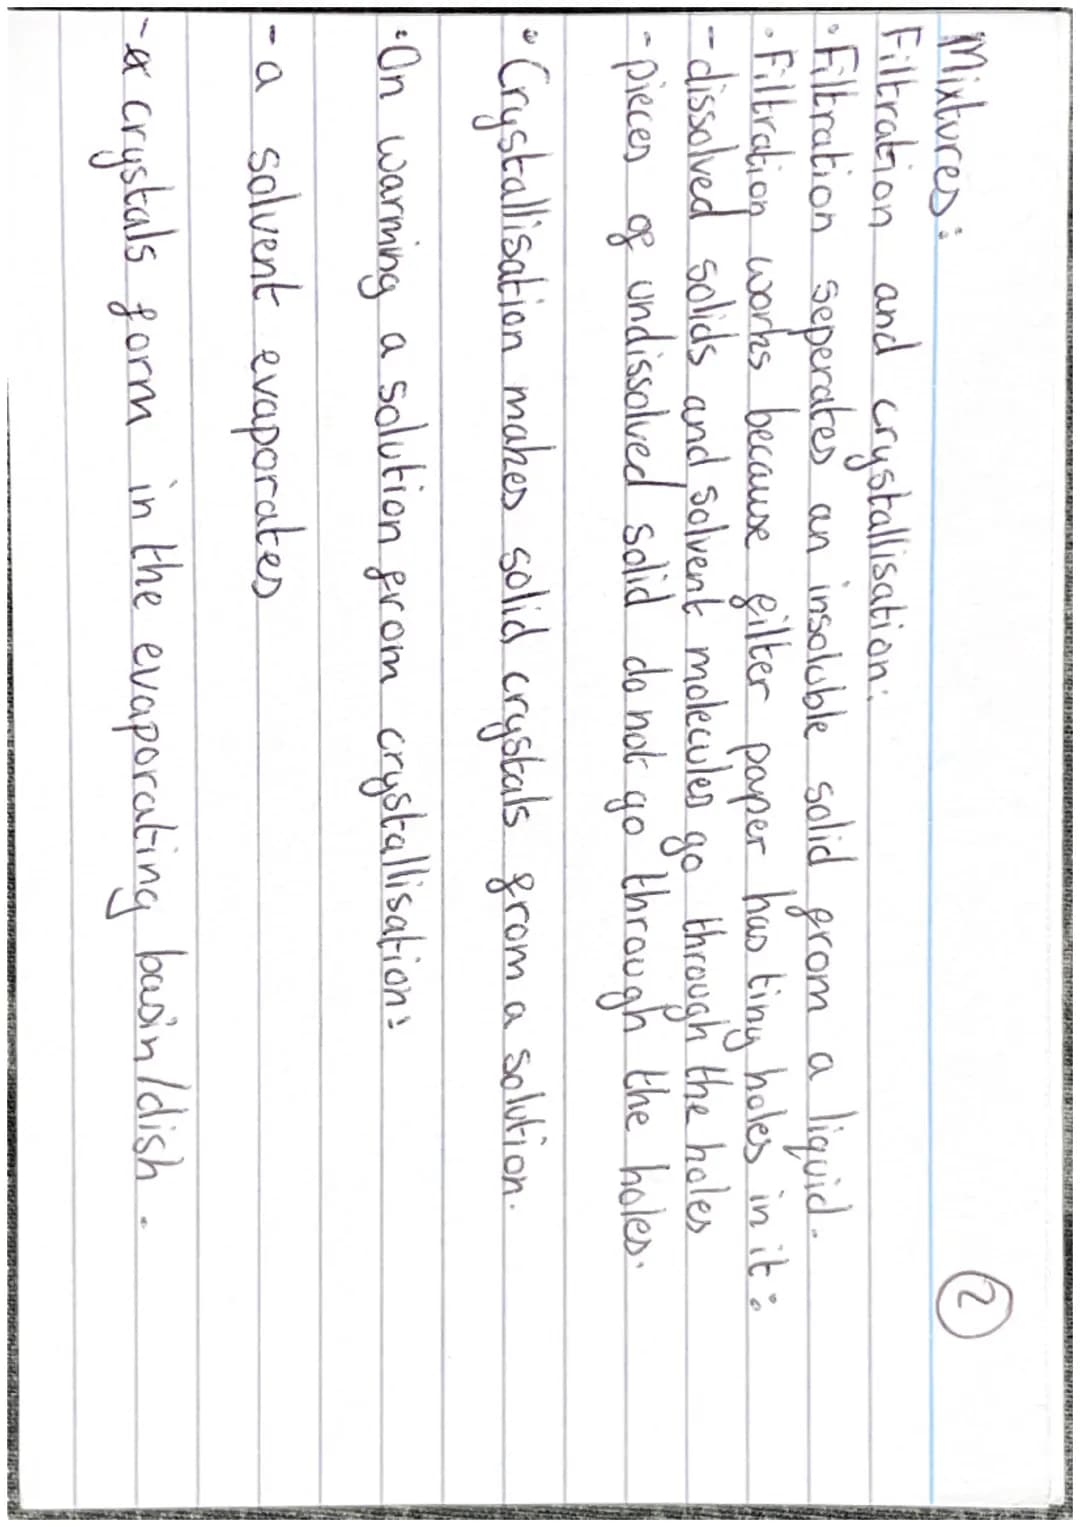 Mixtures:
2
Filtration and crystallisation:
• Filtration seperates an insoluble solid from a liquid.
• Filtration works because filter paper has tiny holes in it:
- dissolved solids and solvent molecules go through the holes
- pieces of undissolved solid do not go through the holes.
• Crystallisation makes solid crystals from a solution.
• On warming a solution from crystallisation:
- a solvent evaporates
- crystals form in the evaporating basin/dish.